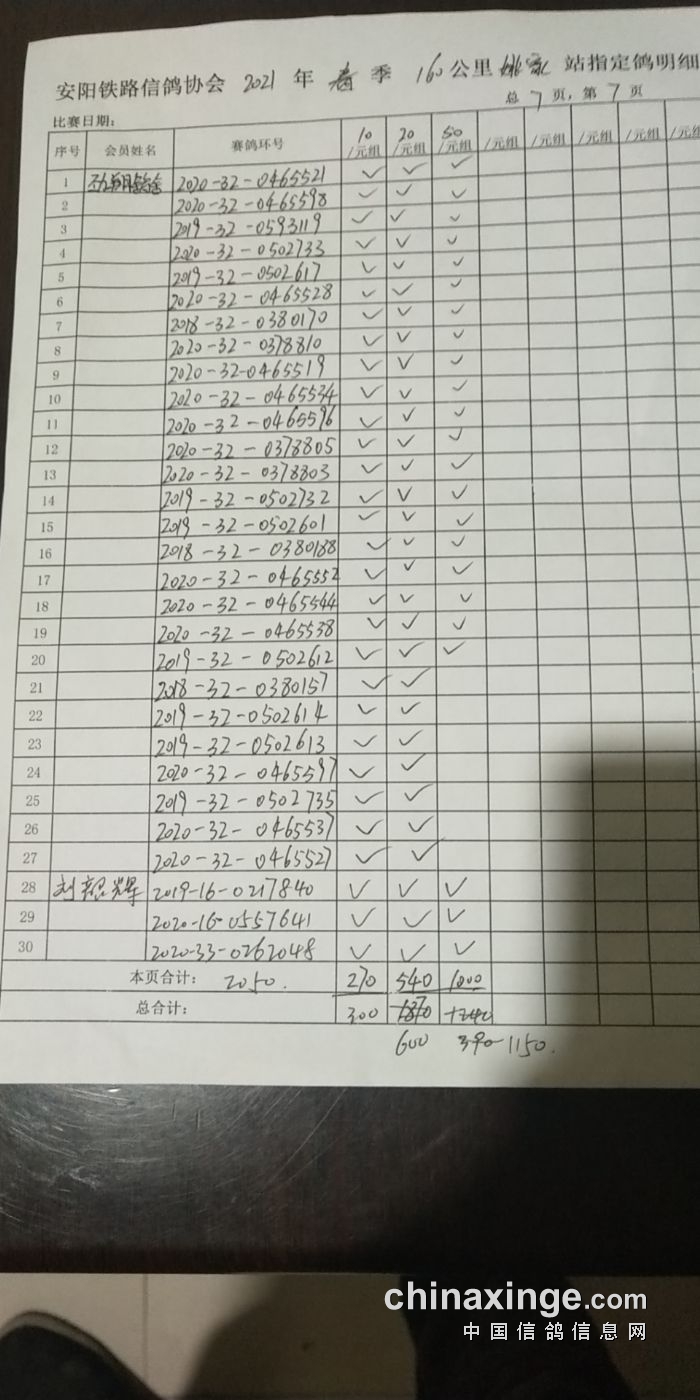 安阳铁路信鸽协会 2021 年 春 季 160 公里 站指定鸽明细
总 7 页，第 7 页
比赛日期：
序号 会员姓名 赛鸽环号 10/元组 20/元组 50/元组 /元组 /元组 /元组 /元组 /元组
1 2020-32-0465521 ✓ ✓ ✓
2 2020-32-0465598 ✓ ✓ ✓
3 2019-32-0593119 ✓ ✓ ✓
4 2020-32-0502733 ✓ ✓ ✓
5 2019-32-0502617 ✓ ✓ ✓
6 2020-32-0465528 ✓ ✓ ✓
7 2018-32-0380170 ✓ ✓ ✓
8 2020-32-0378810 ✓ ✓ ✓
9 2020-32-0465519 ✓ ✓ ✓
10 2020-32-0465534 ✓ ✓ ✓
11 2020-32-0465596 ✓ ✓ ✓
12 2020-32-0378805 ✓ ✓ ✓
13 2020-32-0378803 ✓ ✓ ✓
14 2019-32-0502732 ✓ ✓ ✓
15 2019-32-0502601 ✓ ✓ ✓
16 2018-32-0380188 ✓ ✓ ✓
17 2020-32-0465552 ✓ ✓ ✓
18 2020-32-0465544 ✓ ✓ ✓
19 2020-32-0465538 ✓ ✓ ✓
20 2019-32-0502612 ✓ ✓ ✓
21 2018-32-0380157 ✓ ✓
22 2019-32-0502614 ✓ ✓
23 2019-32-0502613 ✓ ✓
24 2020-32-0465597 ✓ ✓
25 2019-32-0502735 ✓ ✓
26 2020-32-0465537 ✓ ✓
27 2020-32-0465527 ✓ ✓
28 2019-16-0217840 ✓ ✓ ✓
29 2020-16-0557641 ✓ ✓ ✓
30 2020-33-0262048 ✓ ✓ ✓
本页合计： 2050. 270 540 1000
总合计： 300
600 390 1150.
chinaxinge.com
中国信鸽信息网